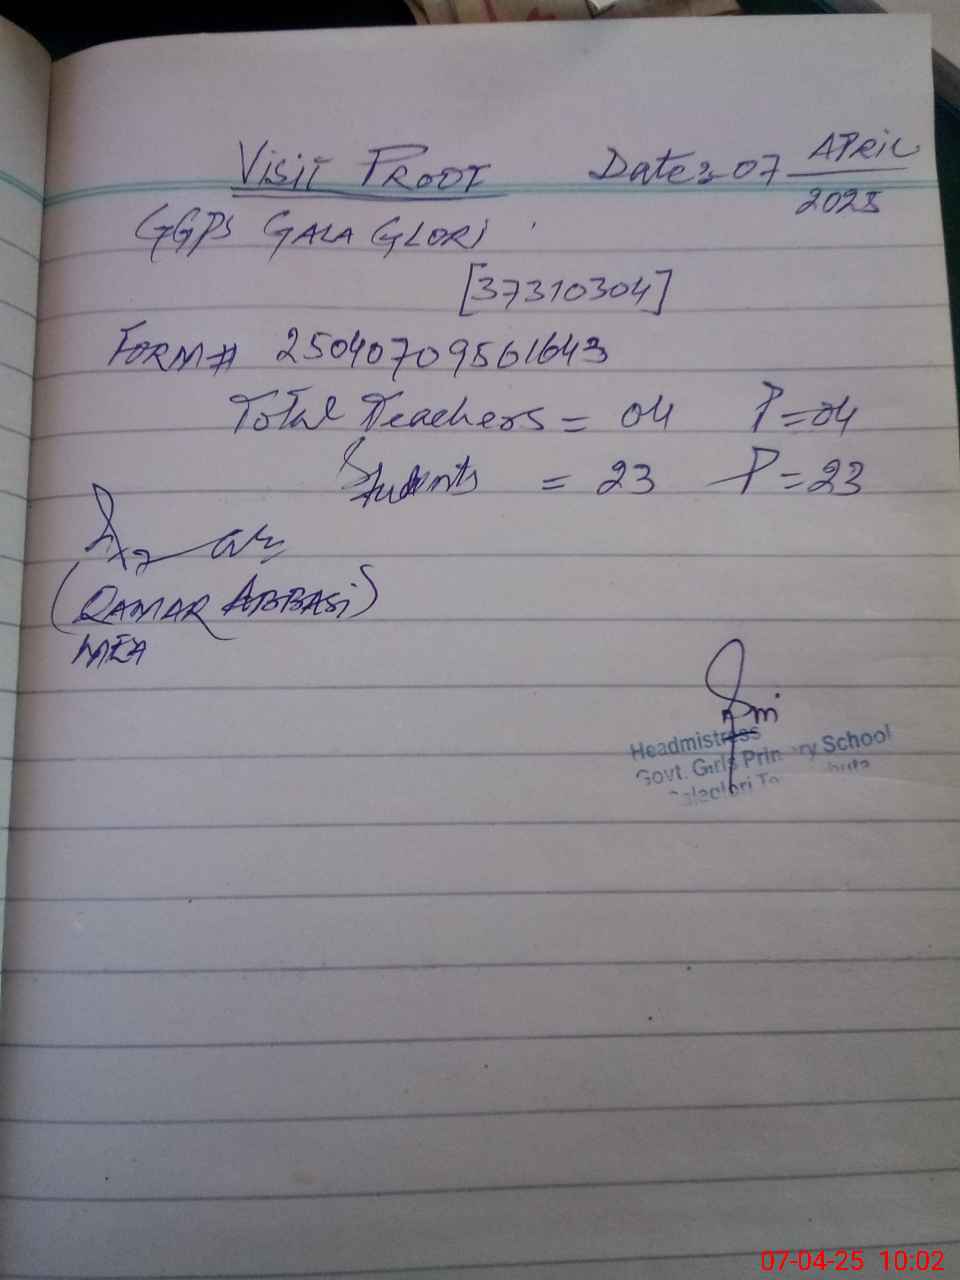 Visit Proof Date: 07 April 2025
GGPS Gala Glori
[37310304]
Form# 25040709561643
Total Teachers = 04 P=04
Students = 23 P=23
(Qamar Abbasi)
MEA
Headmistress
Govt. Girls Primary School
07-04-25 10:02